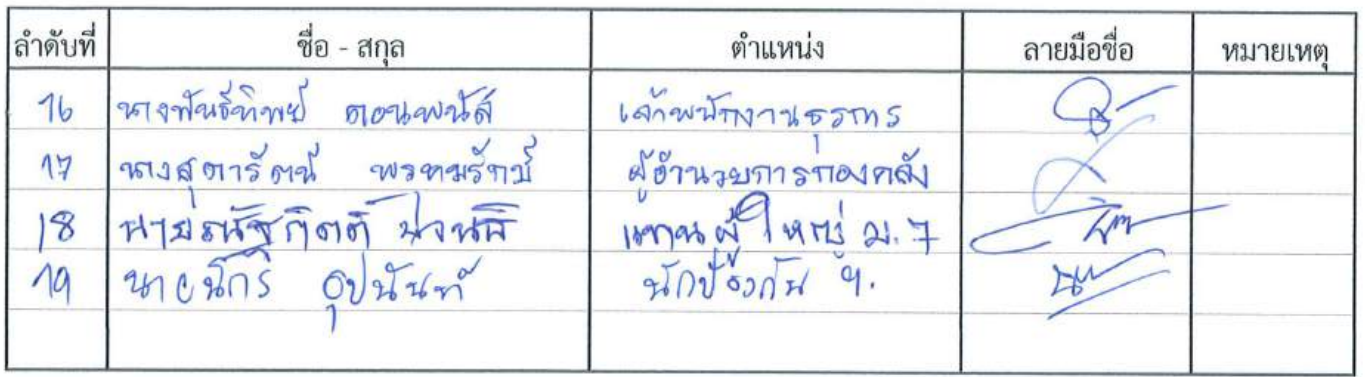 ลำดับที่ ชื่อ - สกุล ตำแหน่ง ลายมือชื่อ หมายเหตุ
16 นางพันธ์ทิพย์ ดอนพนัส เจ้าพนักงานธุรการ
17 นางสุดารัตน์ พรหมรักษ์ ผู้อำนวยการกองคลัง
18 นายณัฐกิตติ์ แทนผู้ใหญ่ ม.7
19 นายนิกร อุปนันท์ นักป้องกัน ฯ.